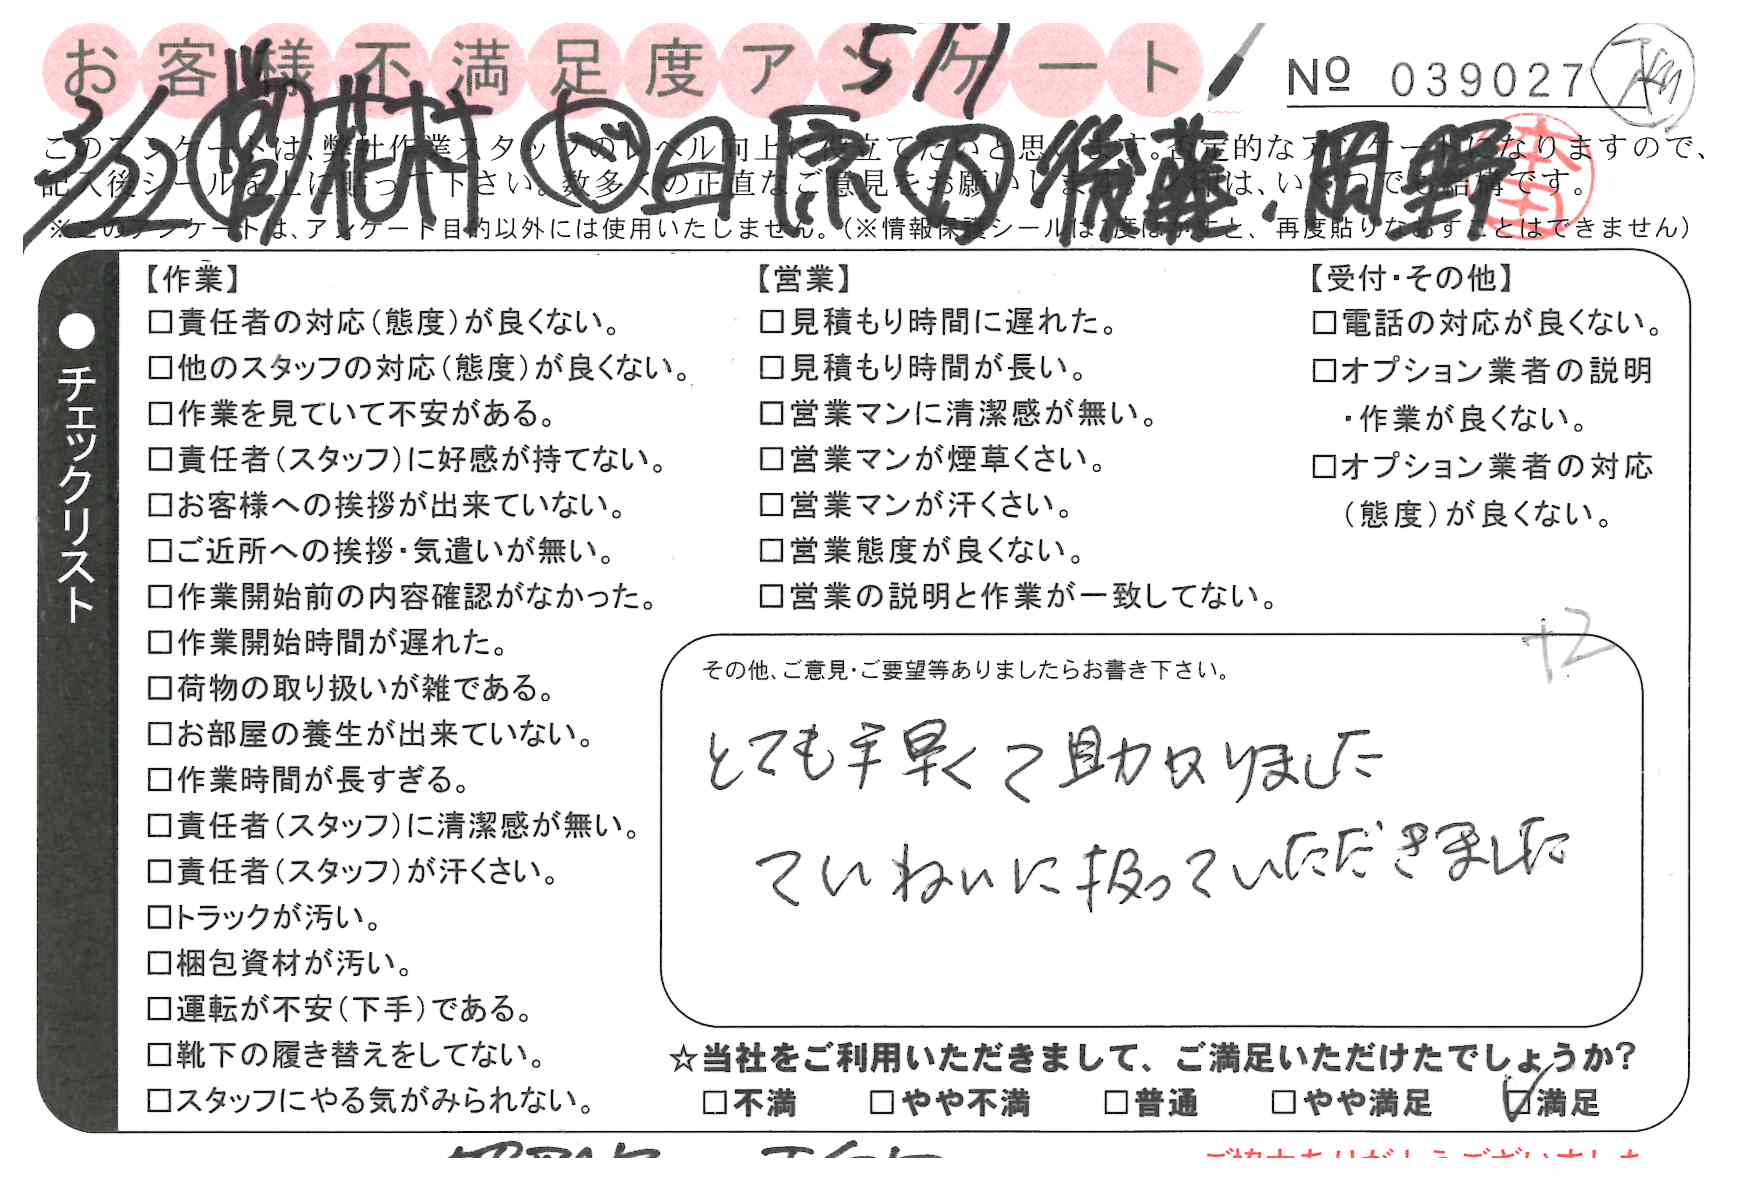 お客様不満足度アンケート
5/1
No 039027
3/22 営 花村 ド 日原 作 後藤、岡野
このアンケートは、弊社作業スタッフのレベル向上に役立てたいと思います。否定的なアンケートになりますので、
記入後シールを上に貼って下さい。数多くの正直なご意見をお願いします。は、いくつでも結構です。
※このアンケートは、アンケート目的以外には使用いたしません。（※情報保護シールは1度はがすと、再度貼りなおすことはできません）
●チェックリスト
【作業】
□責任者の対応（態度）が良くない。
□他のスタッフの対応（態度）が良くない。
□作業を見ていて不安がある。
□責任者（スタッフ）に好感が持てない。
□お客様への挨拶が出来ていない。
□ご近所への挨拶・気遣いが無い。
□作業開始前の内容確認がなかった。
□作業開始時間が遅れた。
□荷物の取り扱いが雑である。
□お部屋の養生が出来ていない。
□作業時間が長すぎる。
□責任者（スタッフ）に清潔感が無い。
□責任者（スタッフ）が汗くさい。
□トラックが汚い。
□梱包資材が汚い。
□運転が不安（下手）である。
□靴下の履き替えをしてない。
□スタッフにやる気がみられない。
【営業】
□見積もり時間に遅れた。
□見積もり時間が長い。
□営業マンに清潔感が無い。
□営業マンが煙草くさい。
□営業マンが汗くさい。
□営業態度が良くない。
□営業の説明と作業が一致してない。
【受付・その他】
□電話の対応が良くない。
□オプション業者の説明
・作業が良くない。
□オプション業者の対応
（態度）が良くない。
+2
その他、ご意見・ご要望等ありましたらお書き下さい。
とても手早くて助かりました
ていねいに扱っていただきました
☆当社をご利用いただきまして、ご満足いただけたでしょうか？
□不満 □やや不満 □普通 □やや満足 ☑満足
ご協力ありがとうございました